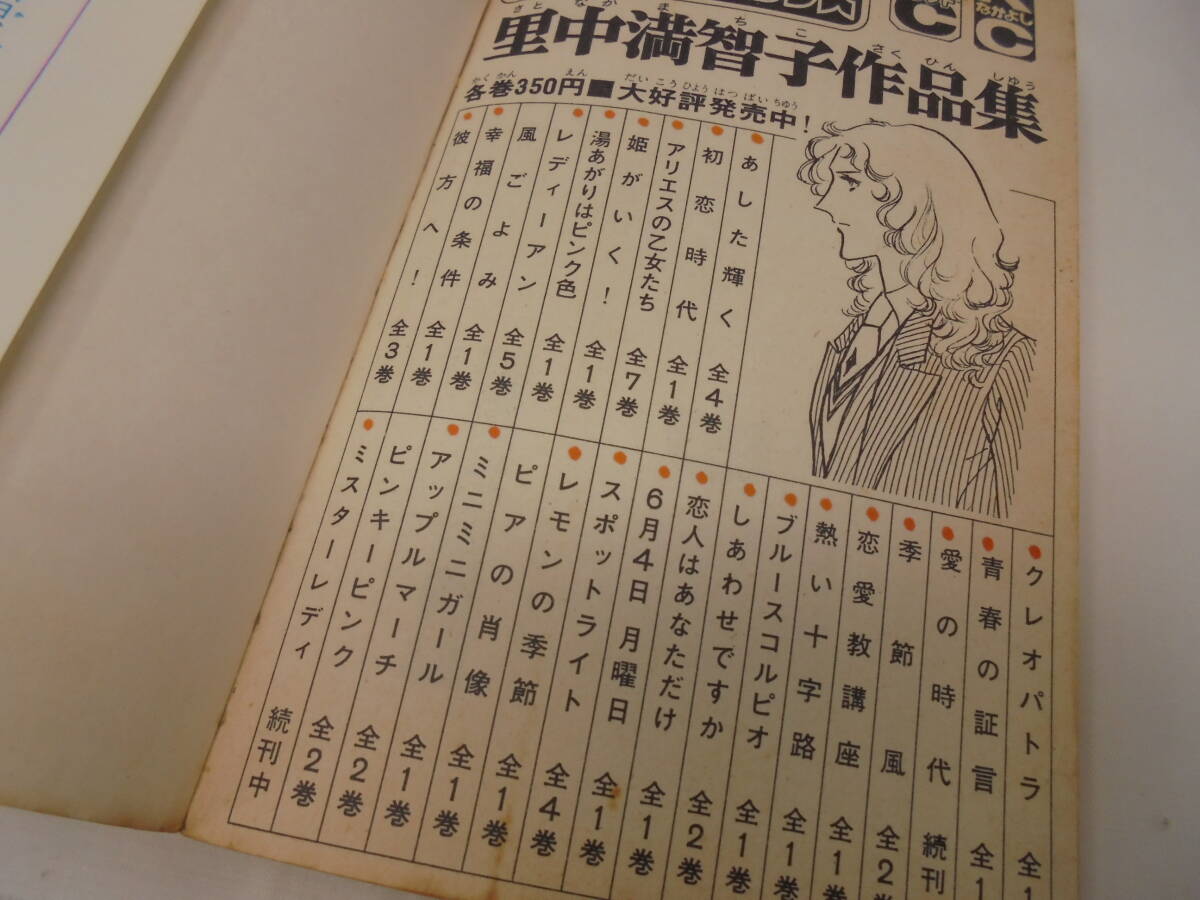 なかよし
C
C
さとなかまちこさくひんしゆう
里中満智子作品集
かくかんえんだいこうひようはつばいちゆう
各巻350円■大好評発売中!
●あした輝く 全4巻
●初恋時代 全1巻
●アリエスの乙女たち 全7巻
●姫がいく! 全1巻
●湯あがりはピンク色 全1巻
●レディーアン 全5巻
風ごよみ 全1巻
●幸福の条件 全1巻
●彼方へ! 全3巻
●クレオパトラ 全1
●青春の証言 全1
●愛の時代 続刊
●季節風 全2巻
●恋愛教講座 全1巻
●熱い十字路 全1巻
●ブルースコルピオ 全1巻
●しあわせですか 全2巻
●恋人はあなただけ 全1巻
●6月4日 月曜日 全1巻
●スポットライト 全4巻
●レモンの季節 全1巻
ピアの肖像 全1巻
●ミニミニガール 全1巻
●アップルマーチ 全2巻
ピンキーピンク 全2巻
●ミスターレディ 続刊中